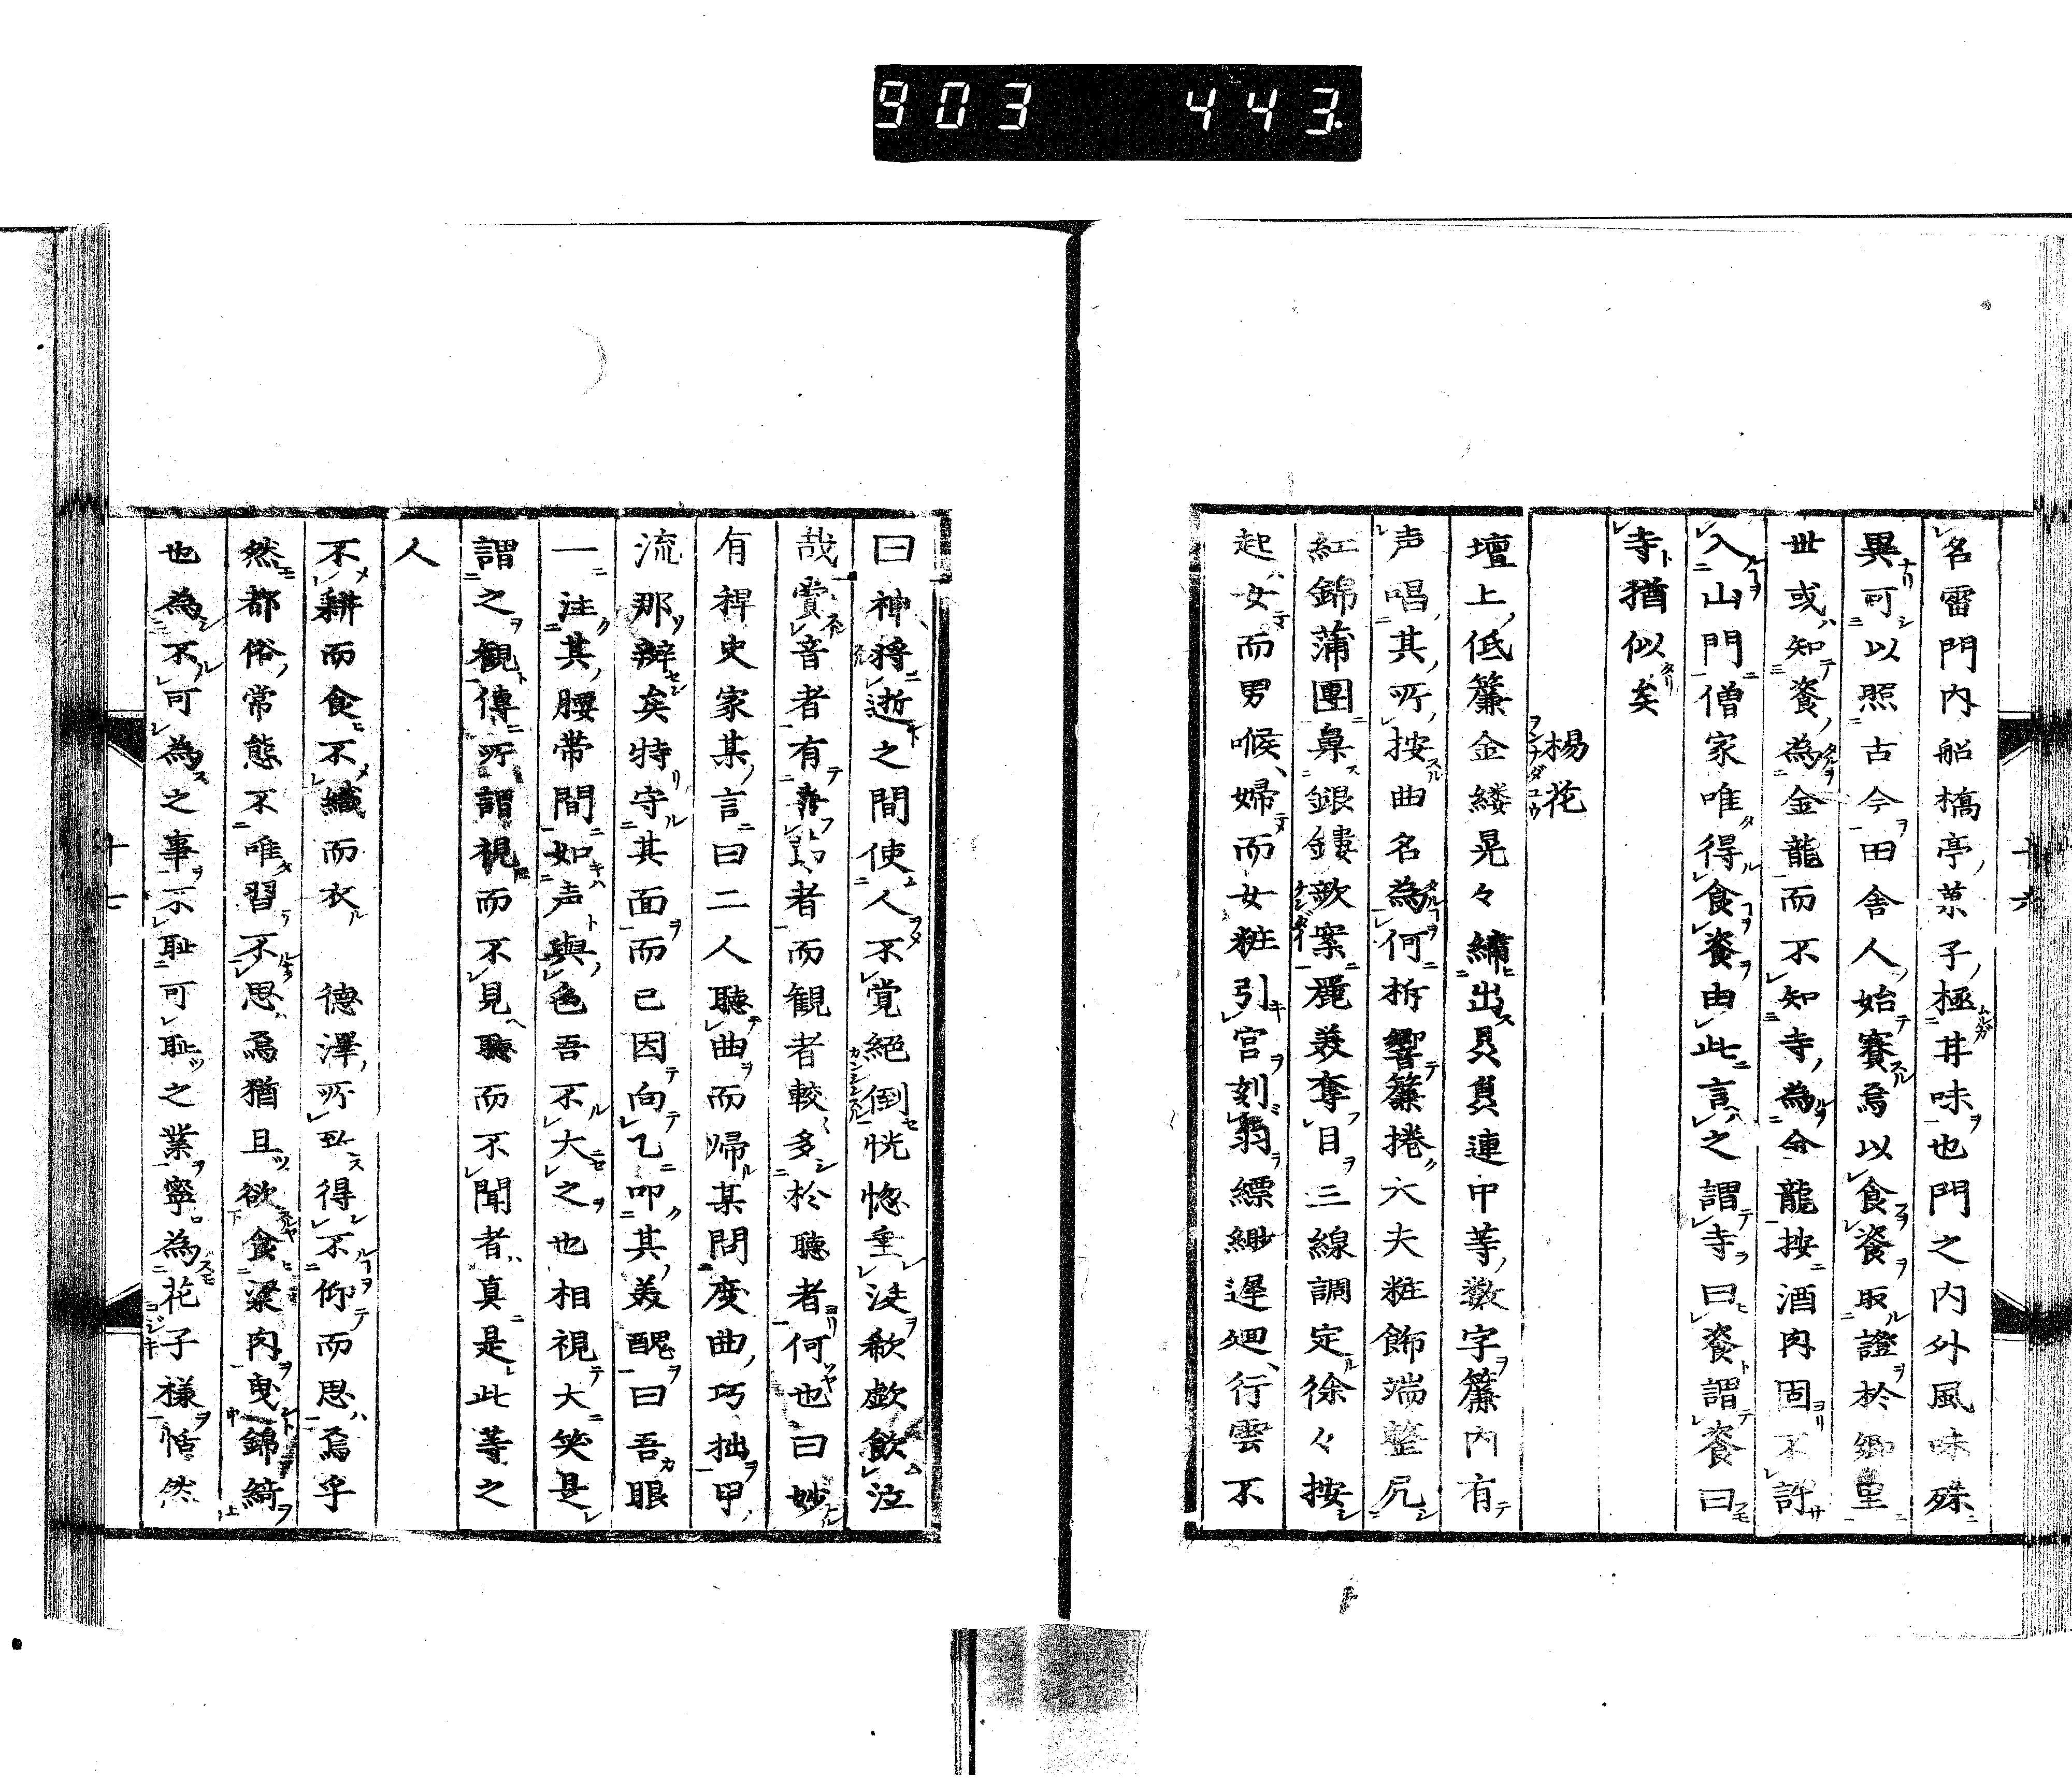 903 443.
名雷門内船橋亭菓子極甘味也門之内外風味殊
異可以照古今田舎人始賽焉以食餈取證於郷里
世或知餈為金龍而不知寺為金龍按酒肉固不許
入山門僧家唯得食餈由此言之謂寺曰餈謂餈曰
寺猶似矣
楊花
壇上低簾金縷晃々繍出貝貝連中等数字簾内有
声唱其所按曲名為何柝響簾捲大夫粧飾端整凥
紅錦蒲團鼻銀鏤歌案麗美奪目三線調定徐々按
起女而男喉婦而女粧引宮刻羽縹緲遅廻行雲不
十六
曰神将逝之間使人不覚絶倒恍惚垂涎欷歔飲泣
哉賞音者有者而観者較多於聴者何也曰妙
有稗史家某言曰二人聴曲而帰某問度曲巧拙甲
流那辨矣特守其面而已因向乙叩其美醜曰吾眼
一注其腰帯間如声與色吾不大之也相視大笑是
謂之観傳所謂視而不見聴而不聞者真是此等之
人
不耕而食不織而衣 德澤所玆得不仰而思焉乎
然都俗常態不唯習不思焉猶且欲食梁肉曳錦綺
也為不可為之事不耻可耻之業寧為花子様恬然
十七